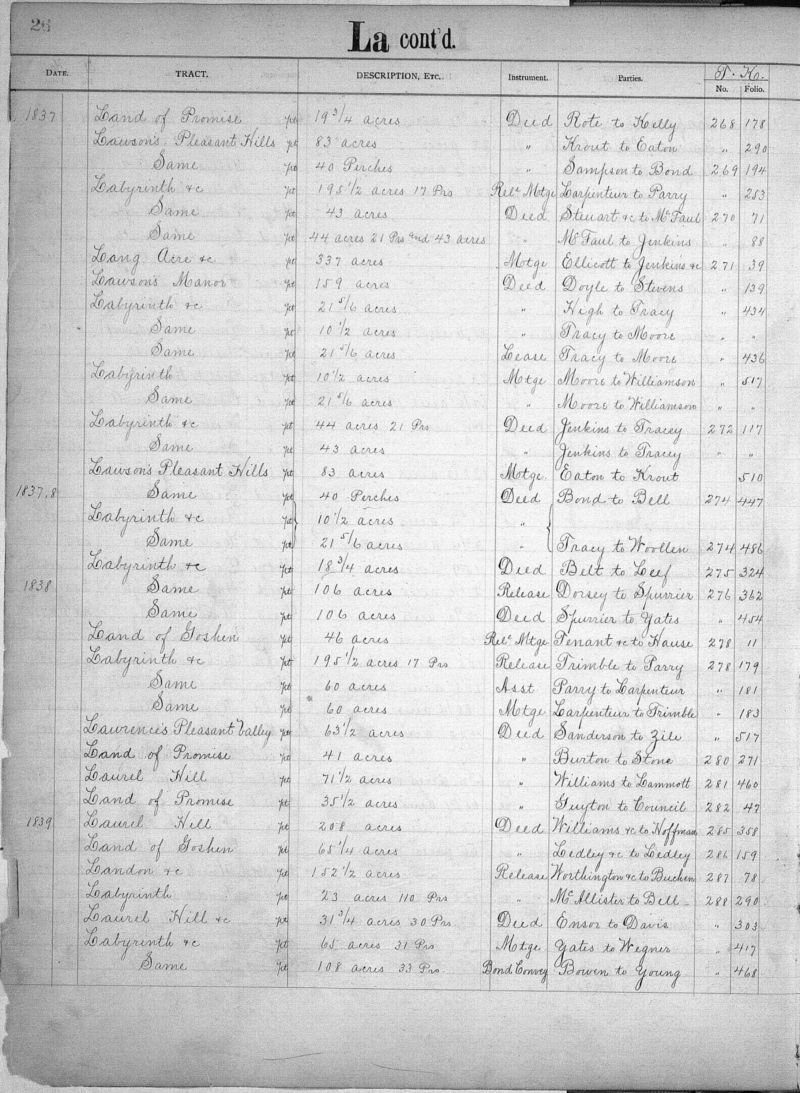 26
La cont'd.
DATE. TRACT. DESCRIPTION, ETC. Instrument. Parties. T. K.
No. Folio.
1837 Land of Promise pt 19 3/4 acres Deed Rote to Kelly 268 178
Lawson's Pleasant Hills pt 83 acres " Krout to Eaton " 290
Same pt 40 Perches " Sampson to Bond 269 194
Labyrinth &c pt 195 1/2 acres 17 Prs Rele Mtge Carpenteur to Parry " 253
Same pt 43 acres Deed Steuart &c to McFaul 270 71
Same pt 44 acres 21 Prs and 43 acres " McFaul to Jenkins " 88
Lang Acre &c pt 337 acres Motge Ellicott to Jenkins &c 271 39
Lawson's Manor pt 159 acres Deed Doyle to Stevens " 139
Labyrinth &c pt 21 5/6 acres " High to Tracy " 434
Same pt 10 1/2 acres " Tracy to Moore " "
Same pt 21 5/6 acres Lease Tracy to Moore " 436
Labyrinth pt 10 1/2 acres Mtge Moore to Williamson " 517
Same pt 21 5/6 acres " Moore to Williamson " "
Labyrinth &c pt 44 acres 21 Prs Deed Jenkins to Tracey 272 117
Same pt 43 acres " Jenkins to Tracey " "
Lawson's Pleasant Hills pt 83 acres Motge Eaton to Krout 510
1837.8 Same pt 40 Perches Deed Bond to Bell 274 447
Labyrinth &c pt 10 1/2 acres "
Same pt 21 5/6 acres " Tracy to Woollen 274 486
Labyrinth &c pt 18 3/4 acres Deed Belt to Leef 275 324
1838 Same pt 106 acres Release Dorsey to Spurrier 276 362
Same pt 106 acres Deed Spurrier to Yates " 454
Land of Goshen pt 46 acres Rele Mtge Tenant &c to Hause 278 11
Labyrinth &c pt 195 1/2 acres 17 Prs Release Trimble to Parry 278 179
Same pt 60 acres Asst Parry to Carpenteur " 181
Same pt 60 acres Mtge Carpenteur to Trimble " 183
Lawrence's Pleasant Valley pt 63 1/2 acres Deed Sanderson to Zile " 517
Land of Promise pt 41 acres " Burton to Stone 280 271
Laurel Hill pt 71 1/2 acres " Williams to Lammott 281 460
Land of Promise pt 35 1/2 acres " Guyton to Council 282 47
1839 Laurel Hill pt 208 acres Deed Williams &c to Hoffman 285 358
Land of Goshen pt 65 1/4 acres " Ledley &c to Ledley 286 159
Landon &c pt 152 1/2 acres Release Worthington &c to Buchen 287 78
Labyrinth pt 23 acres 110 Prs " McAllister to Bell 288 290
Laurel Hill &c pt 31 3/4 acres 30 Prs Deed Ensor to Davis " 303
Labyrinth &c pt 65 acres 31 Prs Mtge Yates to Wegner " 417
Same pt 108 acres 33 Prs Bond. Convey Bowen to Young " 468